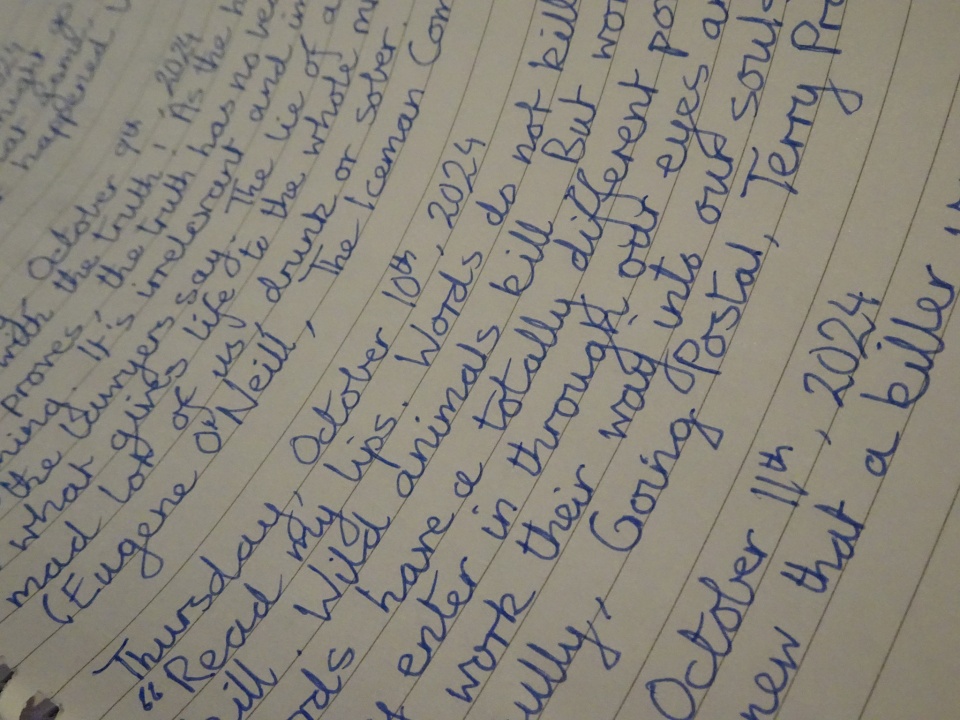 2024
night
happened
October 9th, 2024
with the truth! As the h
proves, the truth has no
ning. It's irrelevant and im
the lawyers say. The lie of a
what gives life to the whole
mad lot of us, drunk or sober.
(Eugene O'Neill, The Iceman Com
Thursday, October 10th, 2024
"Read my lips. Words do not kill
ill. Wild animals kill. But wor
ords have a totally different po
enter in throught our eyes an
work their way into our soul
ully, Going Postal, Terry Pra
October 11th, 2024
new that a killer